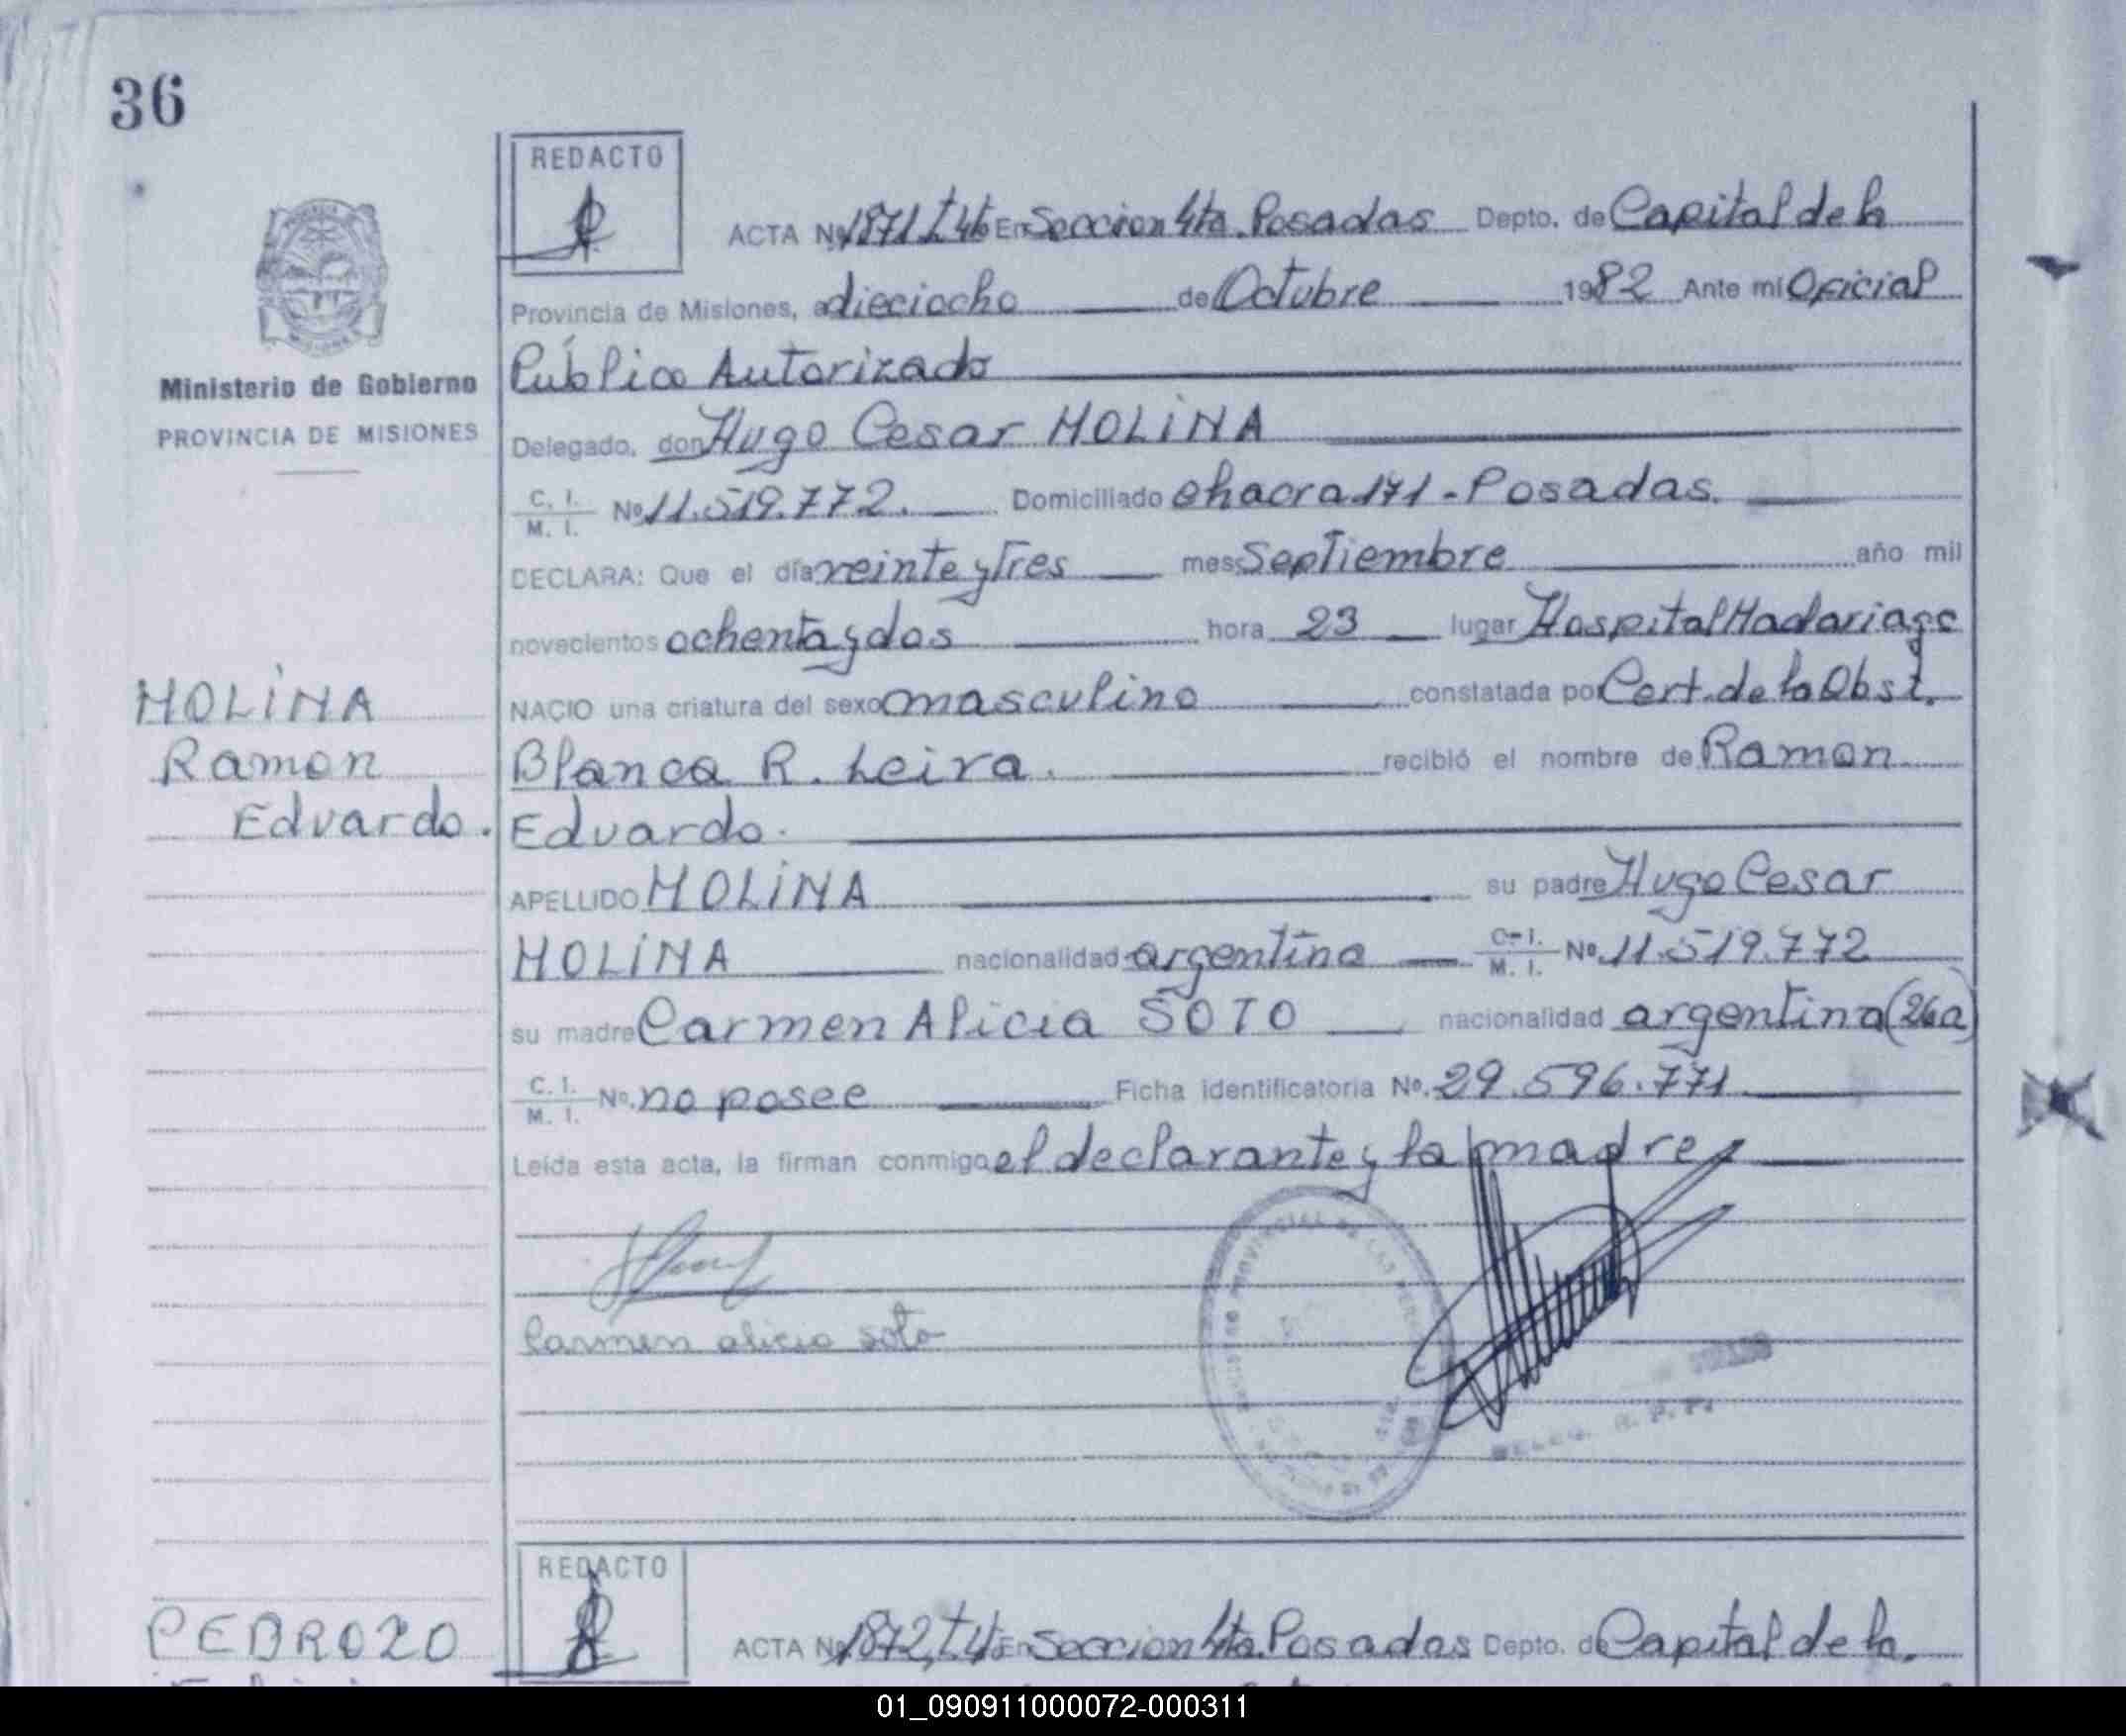 36
REDACTO
ACTA Nº 1871 T 4to En Seccion 4ta. Posadas Depto. de Capital de la
Provincia de Misiones, a dieciocho de Octubre 1982 Ante mi Oficial
Público Autorizado
Ministerio de Gobierno
PROVINCIA DE MISIONES
Delegado, don Hugo Cesar MOLINA
C. I. M. I. Nº 11.519.772. Domiciliado chacra 171 - Posadas.
DECLARA: Que el día veinte y Tres mes Septiembre año mil
novecientos ochenta y dos hora 23 lugar Hospital Madariaga
MOLINA
Ramon
Eduardo.
NACIO una criatura del sexo masculino constatada por Cert. de la Obst.
Blanca R. Leiva. recibió el nombre de Ramon
Eduardo.
APELLIDO MOLINA su padre Hugo Cesar
MOLINA nacionalidad argentina C. I. M. I. Nº 11.519.772
su madre Carmen Alicia SOTO nacionalidad argentina (26a)
C. I. M. I. Nº. no posee Ficha identificatoria Nº. 29.596.771
Leída esta acta, la firman conmigo el declarante y la madre
Carmen alicia soto
REDACTO
PEDROZO
ACTA Nº 1872, T 4to En Seccion 4ta. Posadas Depto. de Capital de la.
01_090911000072-000311